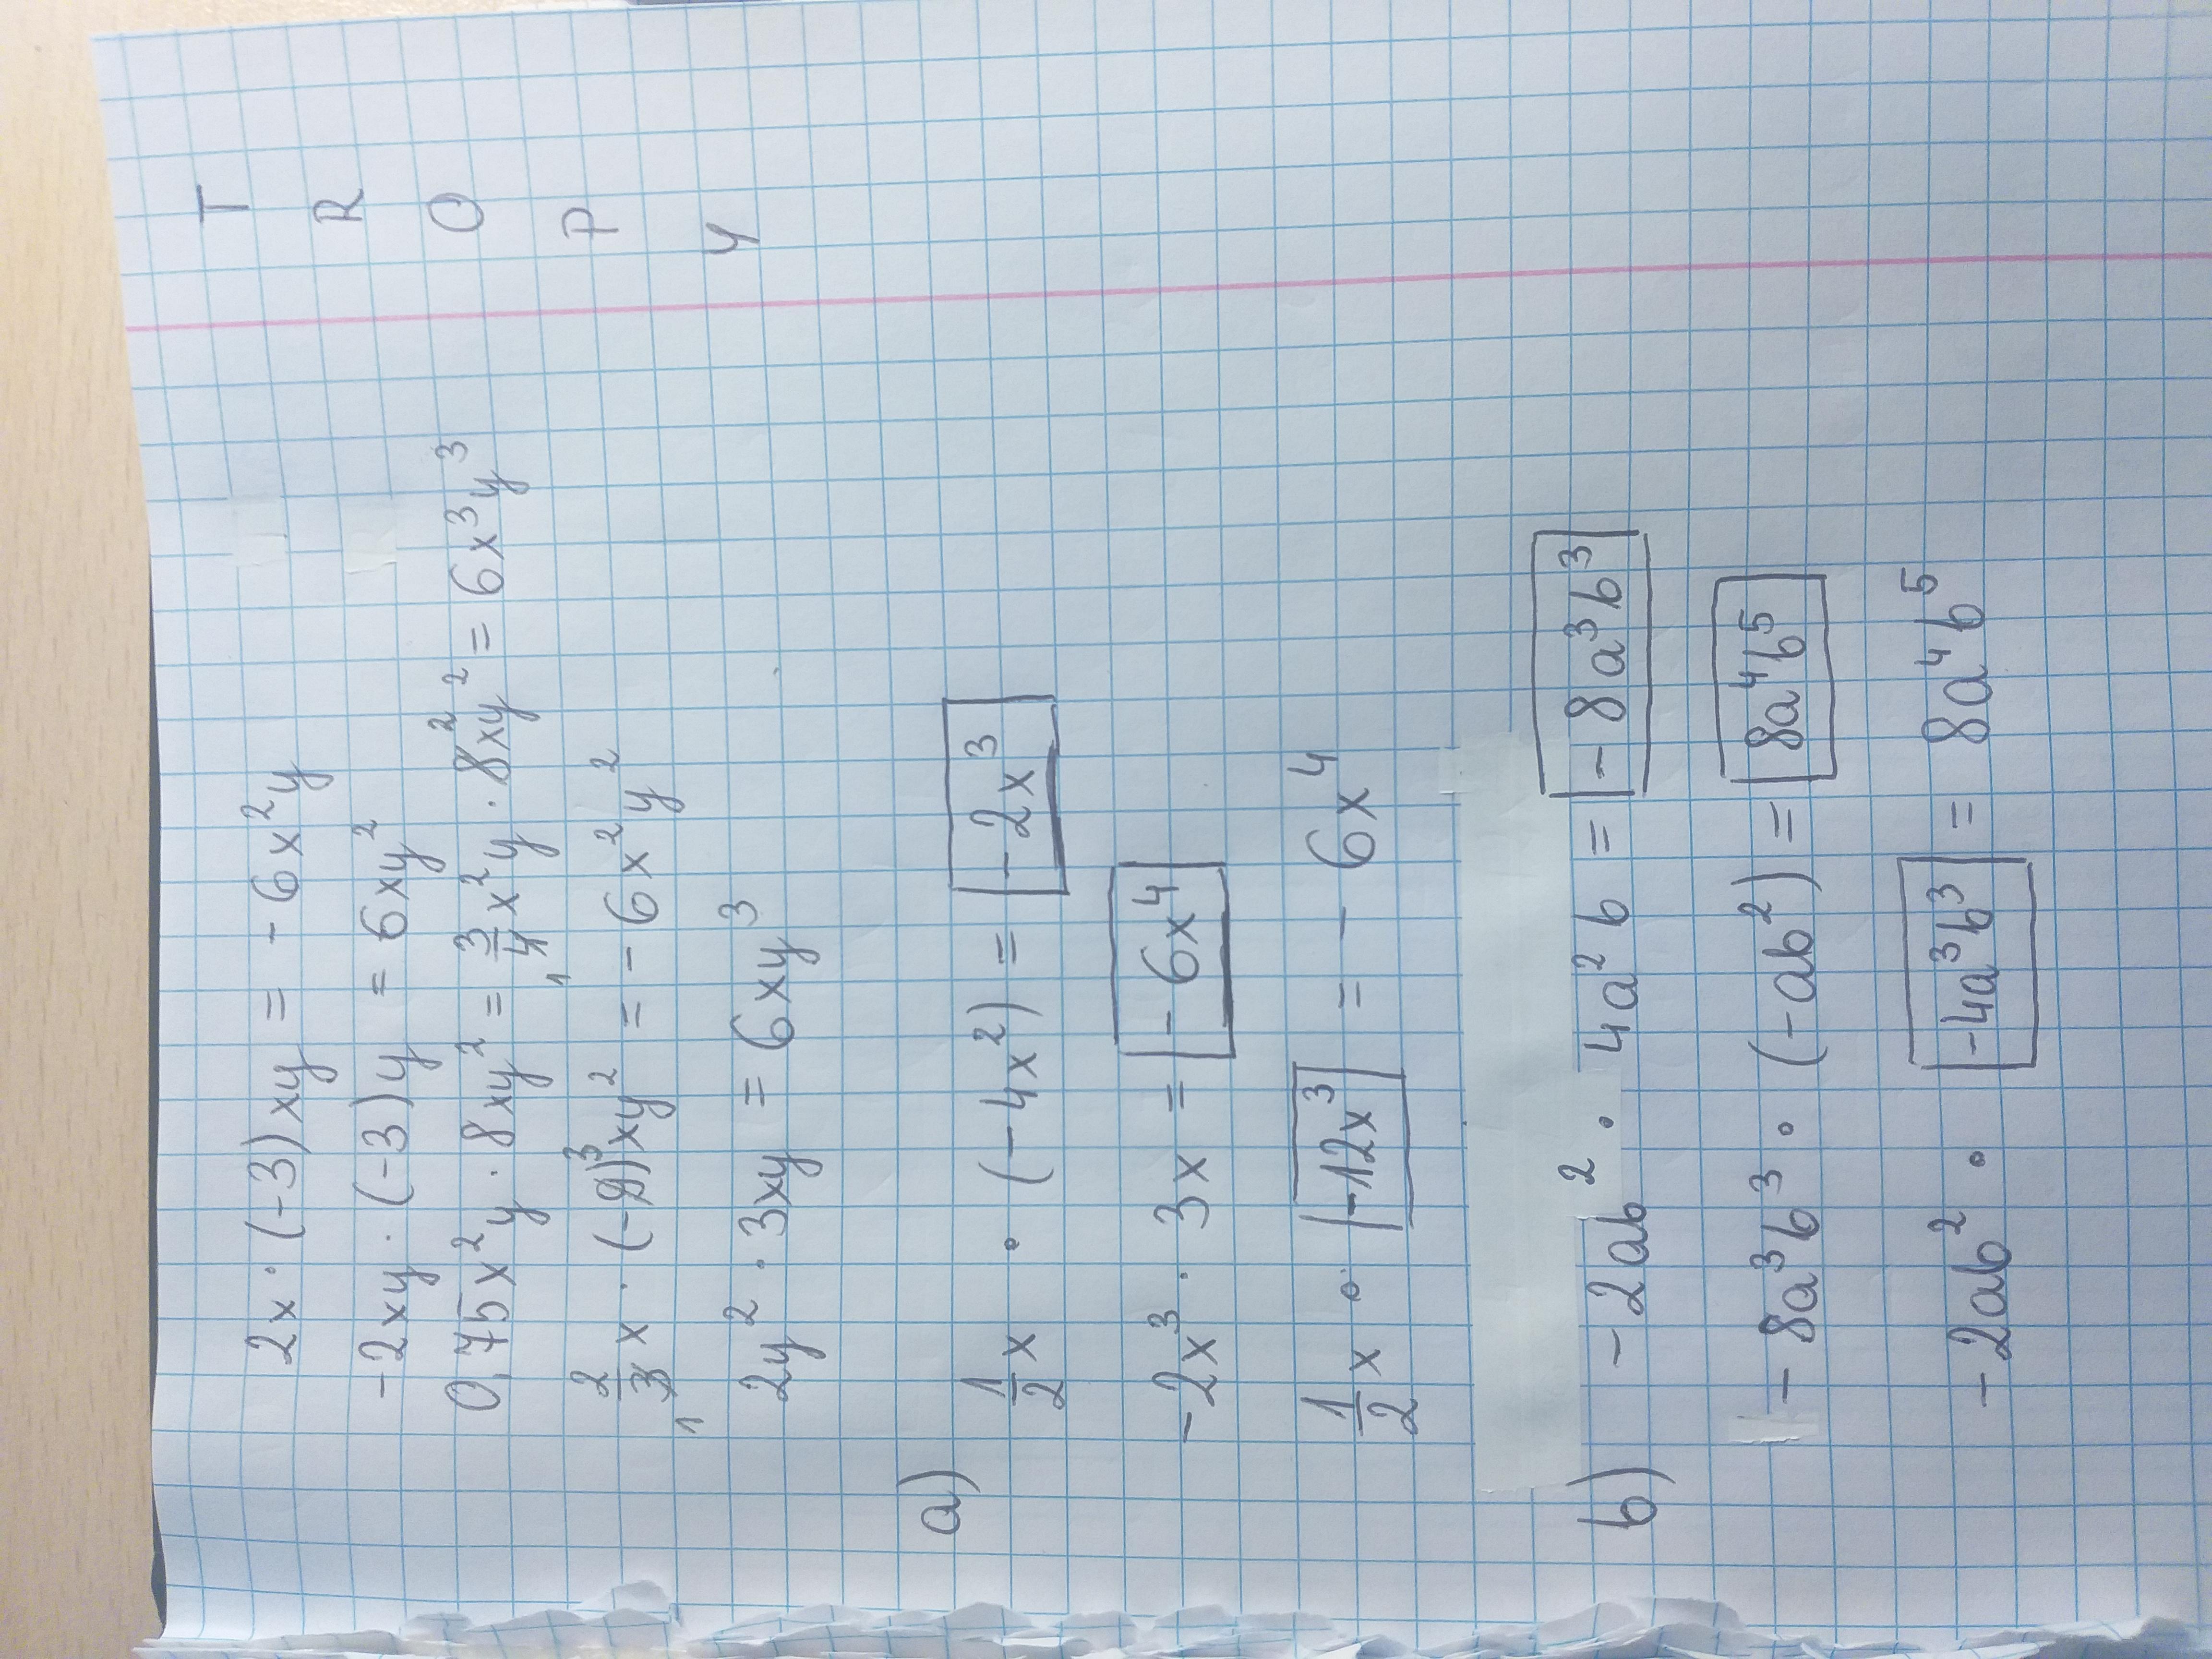 2x · (-3) xy = - 6x²y T
-2xy · (-3) y = 6xy² R
0,75x²y · 8xy² = 3/4 x²y · 8² xy² = 6x³y³ O
1
2/3 x · (-9)³ xy² = - 6x²y² P
1
2y² · 3xy = 6xy³ Y
a) 1/2 x · (-4x²) = - 2x³
-2x³ · 3x = - 6x⁴
1/2 x · -12x³ = - 6x⁴
b) -2ab² · 4a²b = - 8a³b³
- 8a³b³ · (-ab²) = 8a⁴b⁵
- 2ab² · -4a³b³ = 8a⁴b⁵